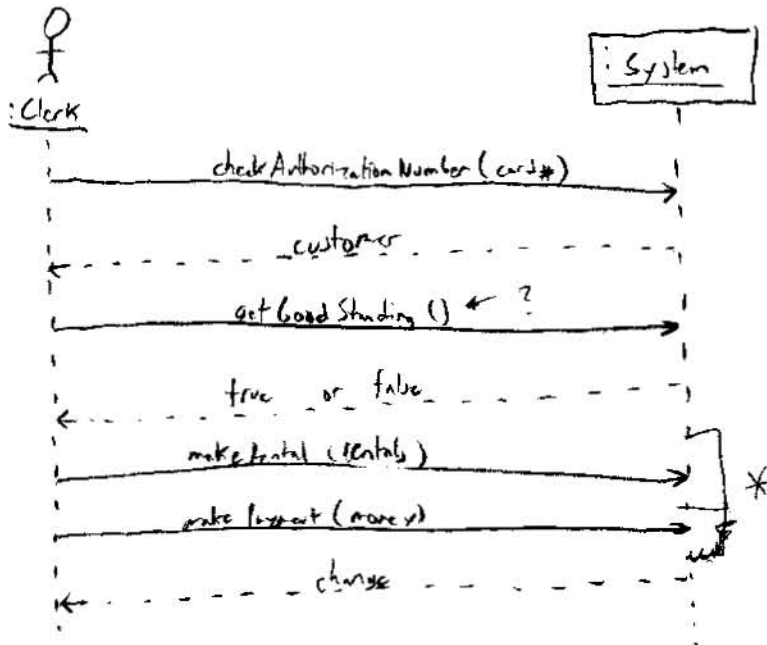 : System
: Clerk
checkAuthorizationNumber (card#)
customer
getGoodStanding () ← ?
true or false
makeRental (rentals)
make Payment (money)
*
change